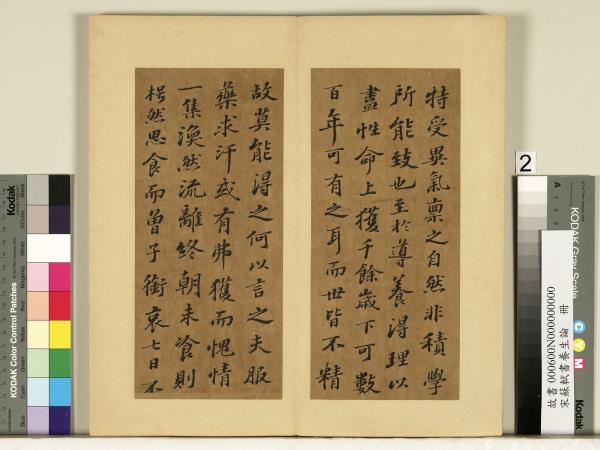 特受異氣禀之自然非積學
所能致也至於導養得理以
盡性命上獲千餘歲下可數
百年可有之耳而世皆不精
故莫能得之何以言之夫服
藥求汗或有弗獲而愧情
一集渙然流離終朝未飡則
枵然思食而曾子銜哀七日不
2
KODAK Color Control Patches
Kodak
Blue
Cyan
Green
Yellow
Red
Magenta
White
3/Color
Black
KODAK Gray Scale
A 1 2 3
C Y M
Kodak
故書 000600N000000000
宋蘇軾書養生論 冊